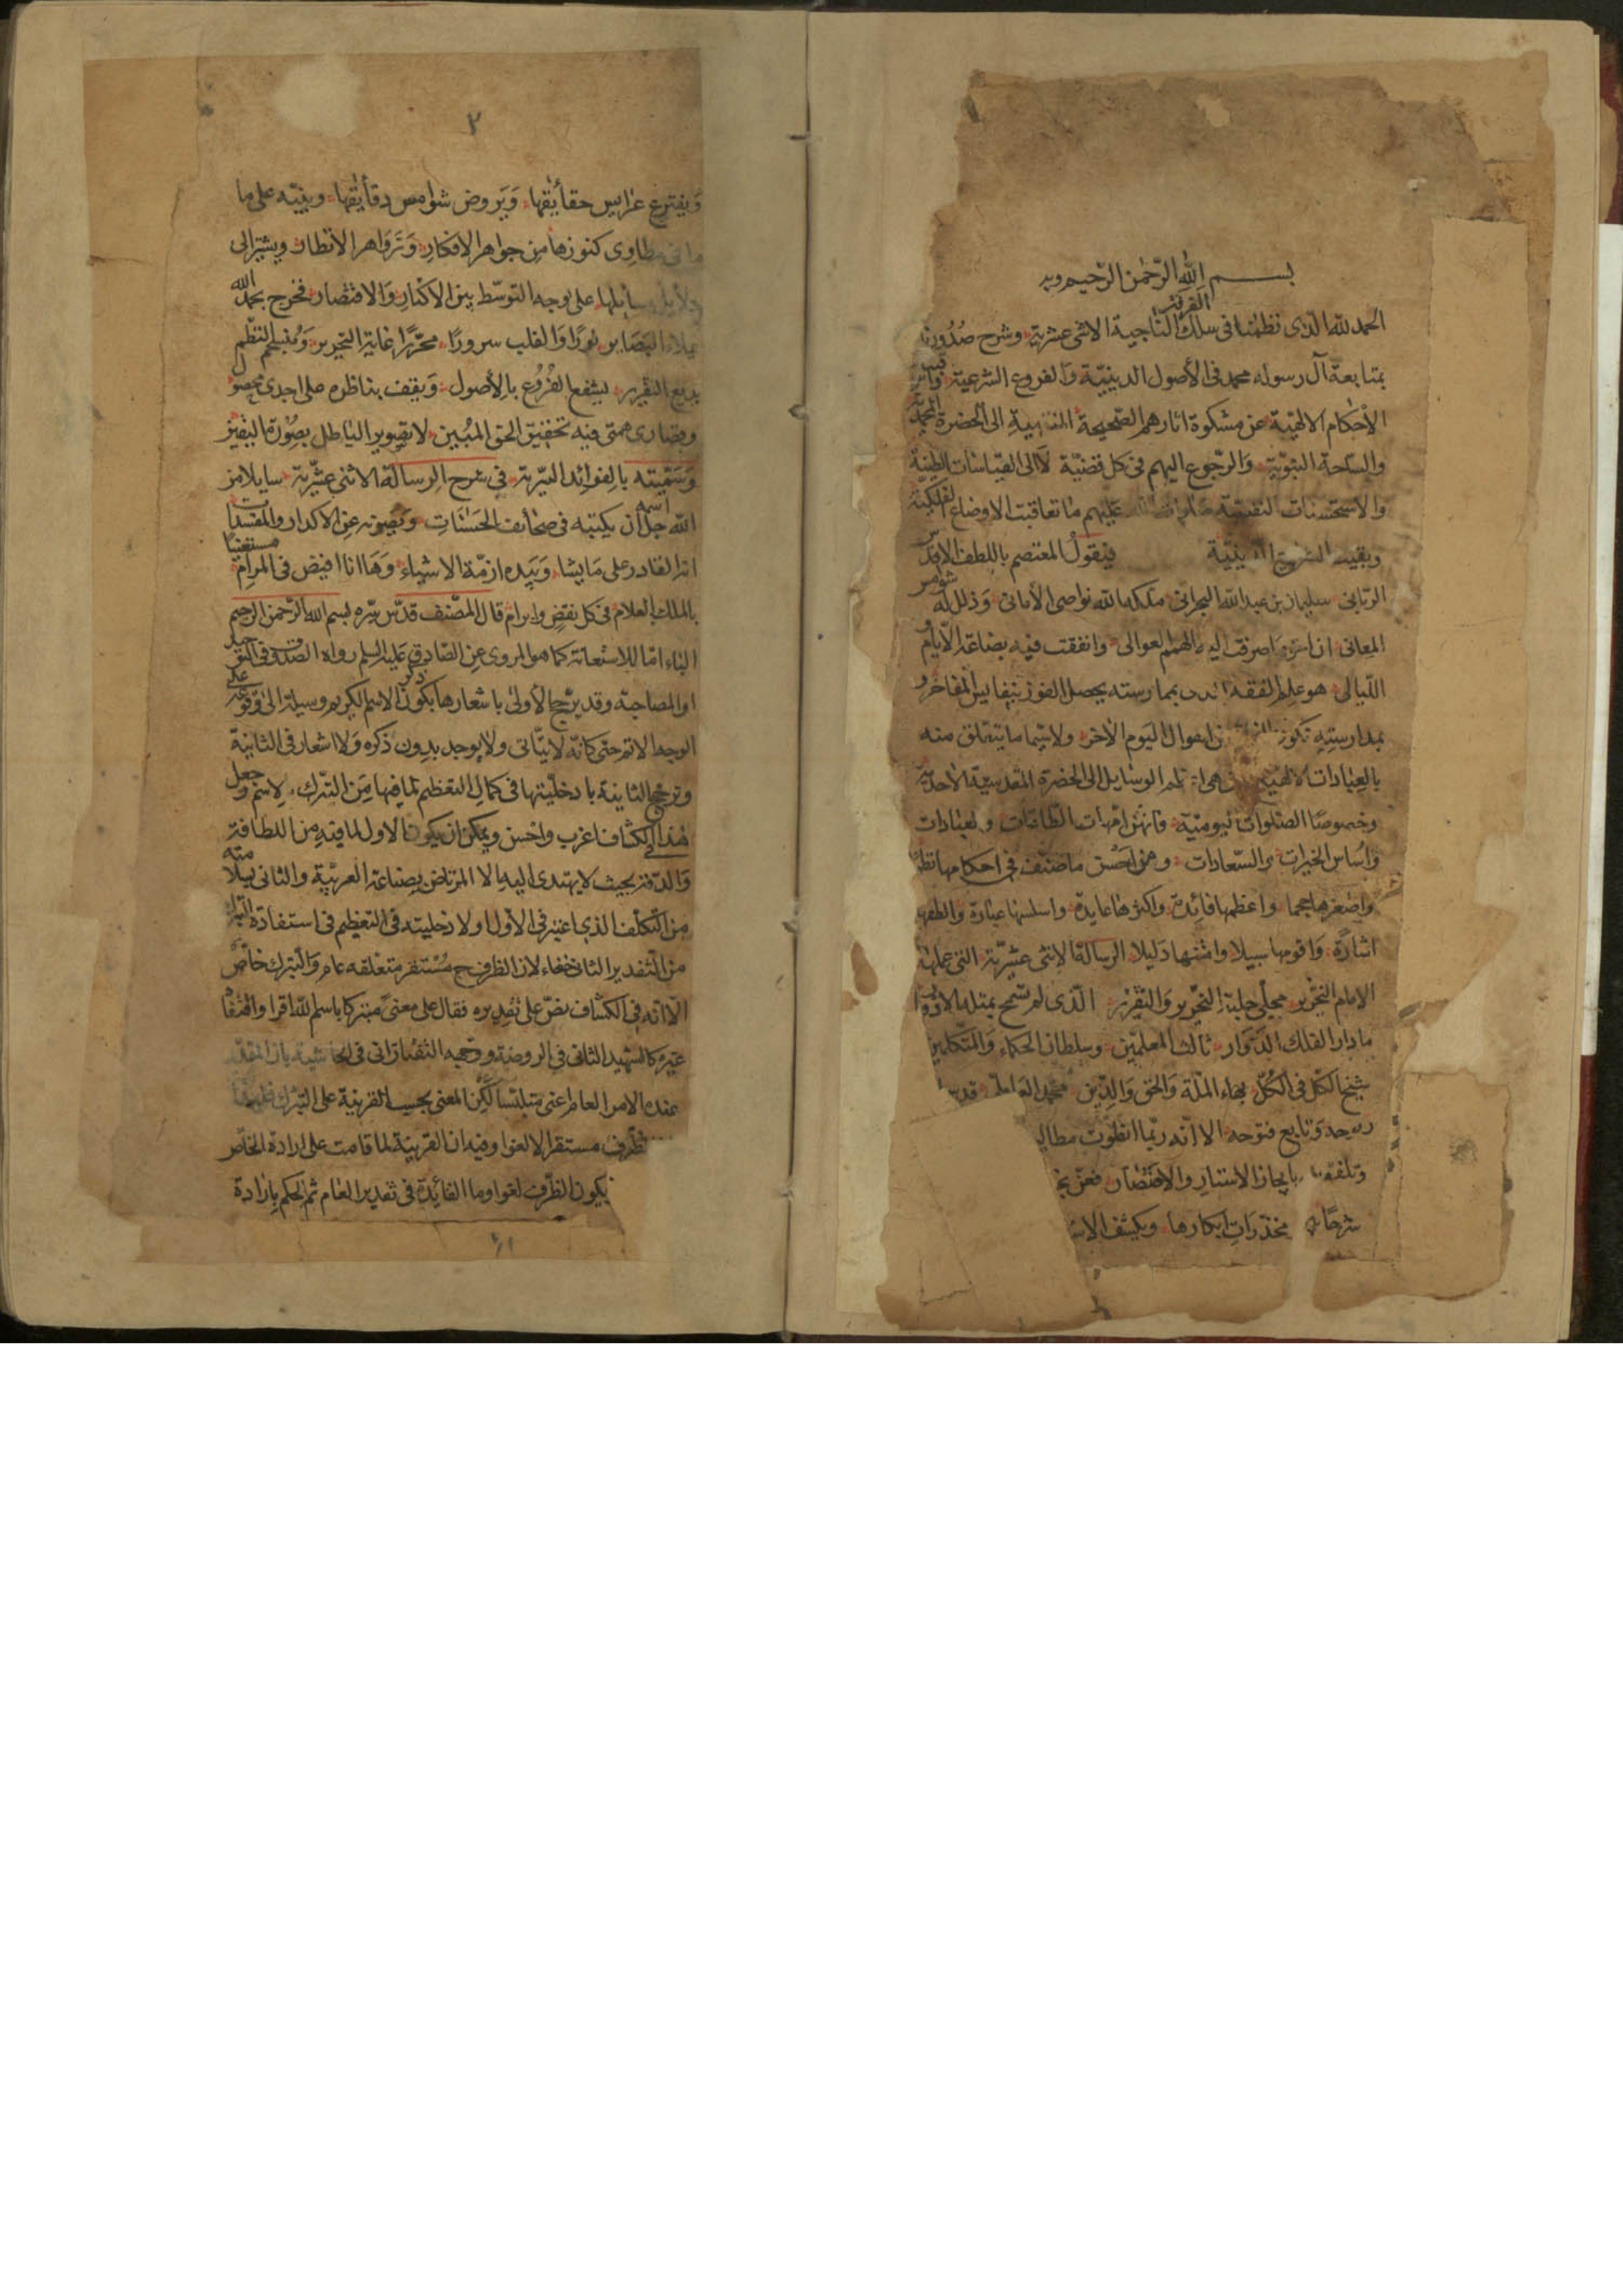 بسم الله الرحمن الرحيم وبه
الحمد لله الذي نظمنا في سلك الفرقة الناجية الاثنى عشرية وشرح صدورنا
بمتابعة آل رسوله محمد في الأصول الدينية والفروع الشرعية
الأحكام الالهية عن مشكوة اثارهم الصحيحة المنتهية الى الحضرة المحمدية
والساحة النبوية والرجوع اليهم في كل قضية لا الى القياسات الظنية
والاستحسنات عليهم ما تعاقبت الاوضاع الفلكية
وبقيت الدينية فيقول المعتصم باللطف الاقدس
الربانى سليمان بن عبد الله البحرانى ملكه الله نواصى الأمانى وذلل له شوامس
المعانى ان اصرفت اليه الهمم العوالى وانفقت فيه بضاعة الأيام و
الليالى هو علم الفقه الذى بممارسته يحصل الفوز بنفايس المفاخر و
بمدارسته تكون اهوال اليوم الآخر ولا سيما ما يتعلق منه
بالعبادات الوسايل الى الحضرة المقدسية الأحدية
وخصوصا الصلوات اليومية فانهن امهات الطاعات والعبادات
واساس الخيرات والسعادات ومن احسن ما صنف في احكامها نظما
واصغرها حجما واعظمها فائدة واكثرها عايدة واسلسها عبارة والطفها
اشارة واقومها سبيلا وامتنها دليلا الرسالة الاثنى عشرية التى عملها
الامام النحرير مجلى حلبة التحرير والتقرير الذى لم تسمح بمثله الادوار
ما دار الفلك الدوار ثالث المعلمين وسلطان الحكماء والمتكلمين
شيخ الكل في الكل بهاء الملة والحق والدين محمد العاملى قدس
روحه وتابع فتوحه الا انه ربما انطوت مطالبها
بايجاز الاستتار والاقتصار فعن
شرحا مخدرات ابكارها ويكشف
٢
ويفترع عرايس حقائقها ويروض شوامس دقائقها وينبه على ما
في مطاوى كنوزها من جواهر الافكار وزواهر الأنظار ويشير الى
دلايل مسائلها على وجه التوسط بين الاكثار والاقتصار فخرج بحمد الله
يملاء البصاير نورا والقلب سرورا محررا غاية التحرير
بديع التقرير ليشفع الفروع بالأصول ويقف بناظره على اجدى محصول
وقصارى همتى فيه تحقيق الحق المبين لا تصوير الباطل بصورة اليقين
وسميته بالفوائد السرية في شرح الرسالة الاثنى عشرية سايلا من
الله جل اسمه ان يكتبه في صحائف الحسنات ويصونه عن الاكدار والمفسدات
انه القادر على ما يشا وبيده ازمة الاشياء وها انا افيض في المرام مستعينا
بالملك العلام في كل نقض وابرام قال المصنف قدس سره بسم الله الرحمن الرحيم
الباء اما للاستعانة كما هو المروى عن الصادق عليه السلم رواه الصدوق في التوحيد
او المصاحبة وقد يرجح الأولى باشعارها بكون ذكر الاسم الكريم وسيلة الى وقوعه على
الوجه الاتم حتى كانه لا يتاتى ولا يوجد بدون ذكره ولا اشعار في الثانية
وترجح الثانية بادخليتها في كمال التعظيم لما فيها من التبرك لاسمه وجعل
هذا في الكشاف اعرب واحسن ويمكن ان يكون الاول لما فيه من اللطافة
والدقة بحيث لا يهتدى اليه الا المرتاض بصناعة العربية والثانى لسلامته
من التكلف الذى اعتبر في الأول او لادخليته في التعظيم في استفادة التبرك
من التقدير الثانى خفاء لان الظرف ح مستقر متعلقه عام والتبرك خاص
الا انه في الكشاف نص على تقديره فقال على معنى متبركا باسم الله اقرا واقتفاه
غيره كالشهيد الثانى في الروضة ووجهه التفتازانى في الحاشية بان المقدر
عنده الامر العام اعنى متلبسا لكن المعنى بحسب القرينة على التبرك
الظرف مستقر الا لغوا وفيه ان القرينة لما قامت على ارادة الخاص
يكون الظرف لغوا وما الفائدة في تقدير العام ثم الحكم بارادة